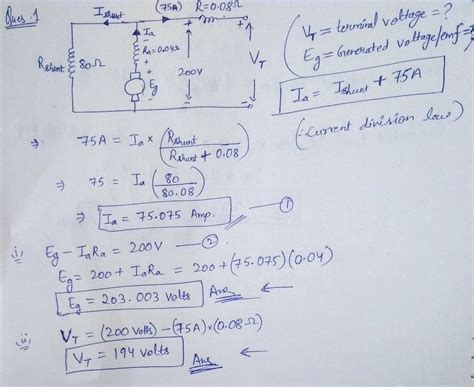 Ques. 1
I shunt
(75A) R=0.08Ω
Ia
Ra=0.04Ω
Rshunt 80Ω
Eg
200V
VT
VT = terminal voltage = ?
Eg = Generated voltage/emf = ?
Ia = Ishunt + 75A
(∴ Current division law)
⇒ 75A = Ia × (Rshunt / Rshunt + 0.08)
⇒ 75 = Ia (80 / 80.08)
⇒ Ia = 75.075 Amp. — ①
i) Eg – IaRa = 200V — ②
Eg = 200 + IaRa = 200 + (75.075)(0.04)
Eg = 203.003 volts Ans ←
ii) VT = (200 Volts) – (75A)×(0.08Ω)
VT = 194 volts Ans ←